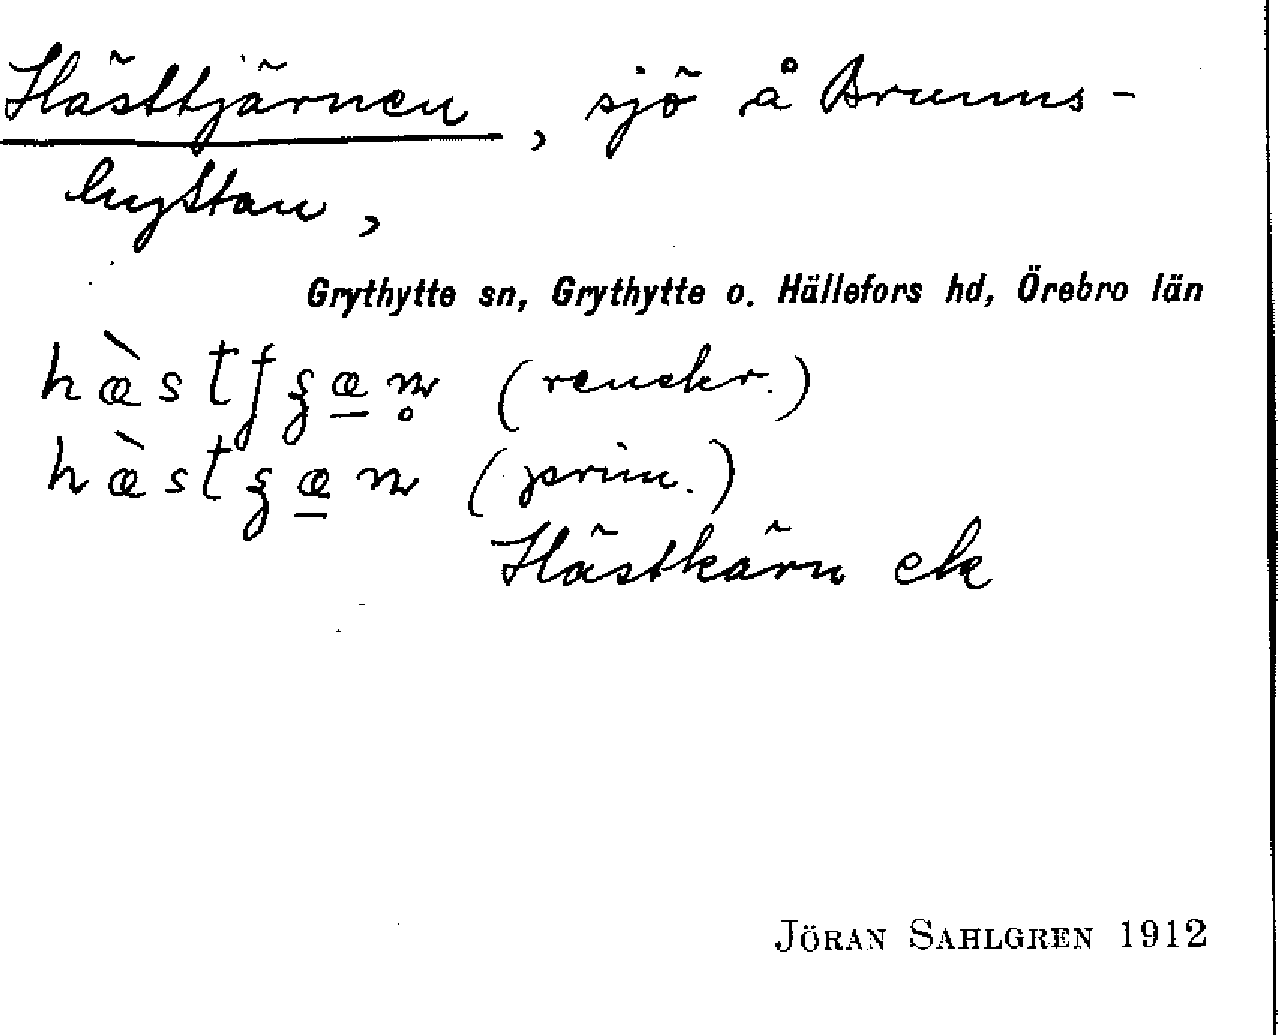 Hästtjärnen, sjö å Brunns-
hyttan,
Grythytte sn, Grythytte o. Hällefors hd, Örebro län
(renskr.)
(prim.)
Hästkärn ek
JÖRAN SAHLGREN 1912